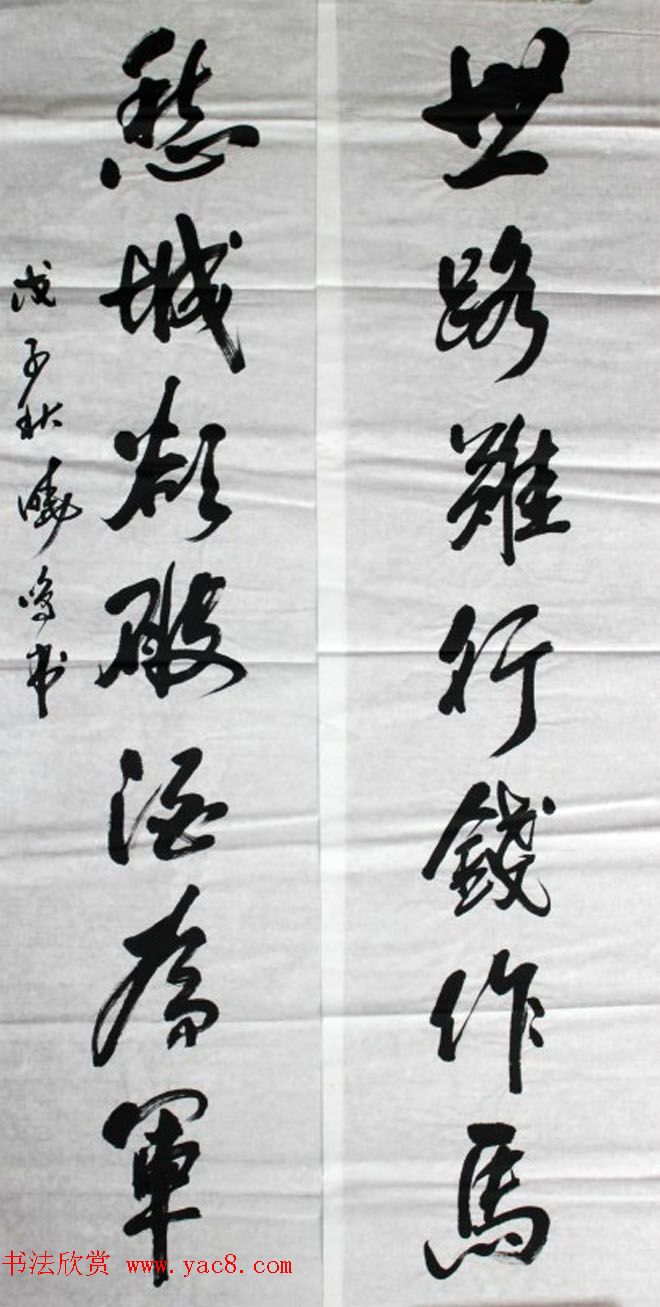 世路難行錢作馬
愁城欲破酒為軍
戊子秋曉鸣书
书法欣赏 www.yac8.com